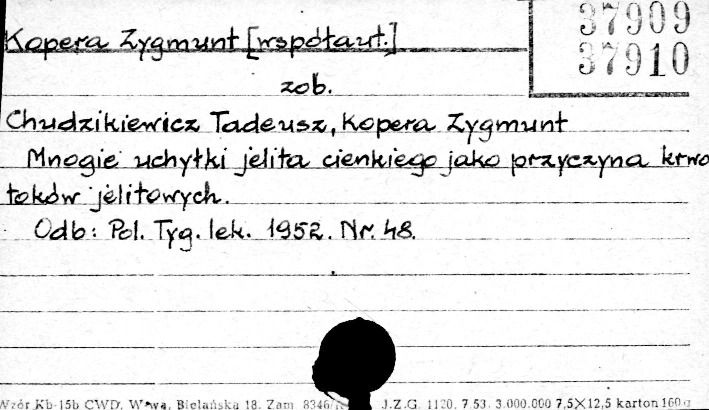 37909
37910
Kopera Zygmunt [współaut.]
zob.
Chudzikiewicz Tadeusz, Kopera Zygmunt
Mnogie uchyłki jelita cienkiego jako przyczyna krwo
toków jelitowych.
Odb: Pol. Tyg. lek. 1952. Nr. 48.
Wzór Kb-15b CWD, W-wa, Bielańska 18. Zam. 8346/ J.Z.G. 1120. 7.53. 3.000.000 7,5×12,5 karton 160g